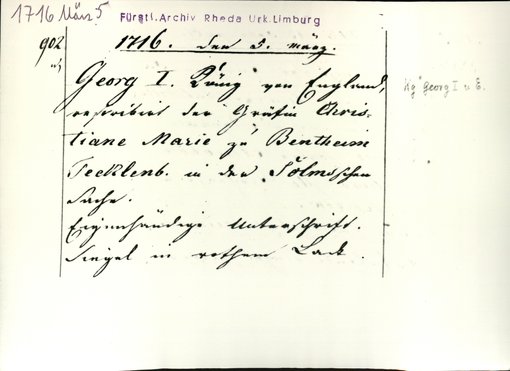 1716 März 5
Fürstl. Archiv Rheda Urk. Limburg
902
1716. den 5. März.
Georg I. König von England,
rescribirt der Gräfin Chris-
tiane Marie zu Bentheim
Tecklenb. in der Solmschen
Sache.
Eigenhändige Unterschrift.
Siegel in rothem Lack.
Kg Georg I v. E.